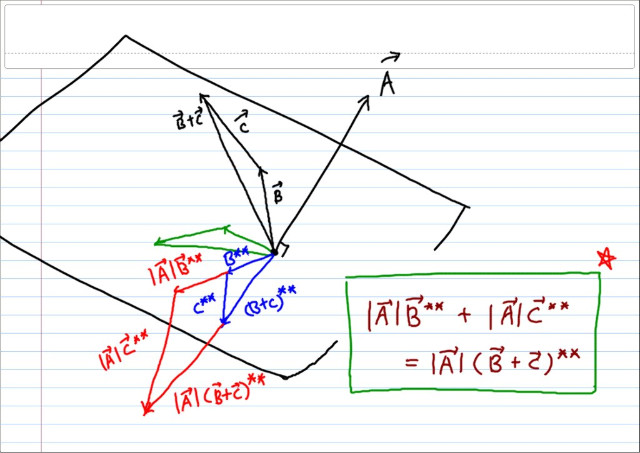 A⃗
B⃗+C⃗
C⃗
B⃗
B**
|A⃗|B⃗**
C**
(B+C)**
|A⃗|C⃗**
|A⃗|(B⃗+C⃗)**
|A⃗|B⃗** + |A⃗|C⃗**
= |A⃗|(B⃗+C⃗)**